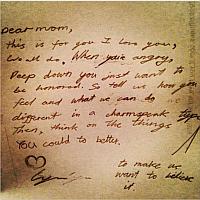 Dear mom,
this is for you I love you,
We all do. When you're angry,
Deep down you just want to
be honored. So tell us how you
feel and what we can do
different in a charmspeak type
Then, think on the things
You could to better.
to make us
want to believe
it.